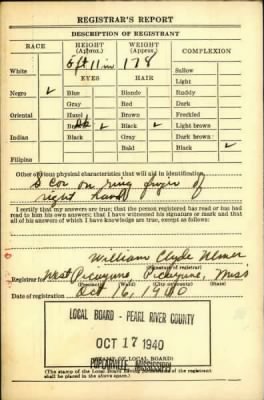 REGISTRAR'S REPORT
DESCRIPTION OF REGISTRANT
RACE HEIGHT (Approx.) WEIGHT (Approx.) COMPLEXION
White 5 ft 11 in 178 Sallow
EYES HAIR Light
Negro ✓ Blue Blonde Ruddy
Gray Red Dark
Oriental Hazel Brown Freckled
Brown Dk ✓ Black ✓ Light brown
Indian Black Gray Dark brown
Bald Black ✓
Filipino
Other obvious physical characteristics that will aid in identification
Scar on ring finger of
right hand
I certify that my answers are true; that the person registered has read or has had
read to him his own answers; that I have witnessed his signature or mark and that
all of his answers of which I have knowledge are true, except as follows:
William Clyde
(Signature of registrar)
Registrar for West Picayune, Picayune, Miss
(Precinct) (Ward) (City or county) (State)
Date of registration Oct 16, 1940
LOCAL BOARD - PEARL RIVER COUNTY
OCT 17 1940
POPLARVILLE, MISSISSIPPI
(STAMP OF LOCAL BOARD)
(The stamp of the Local Board
shall be placed in the above space.)